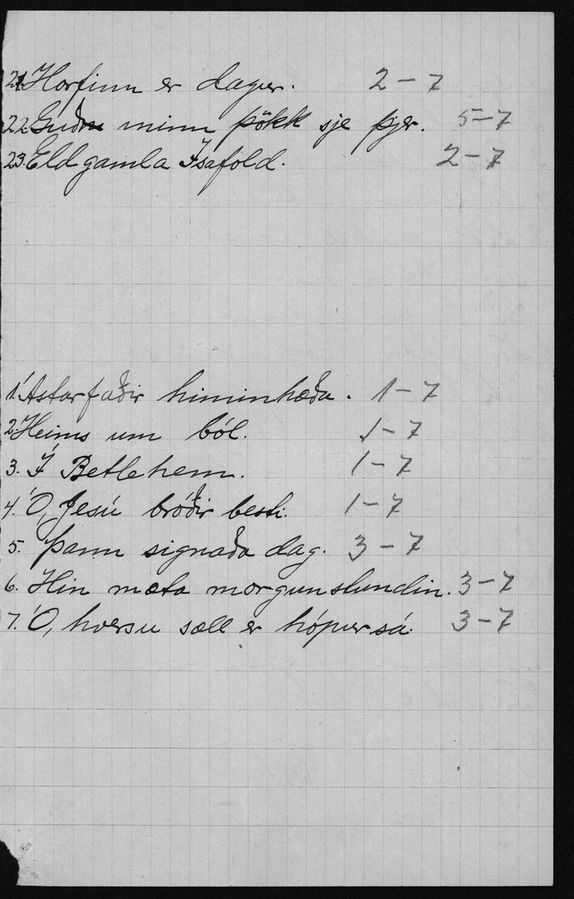 21. Horfinn er dagur. 2 - 7
22. Guð minn þökk sje þjer. 5 - 7
23. Eldgamla Ísafold. 2 - 7
1. Ástarfaðir himinhæða. 1 - 7
2. Heims um ból. 1 - 7
3. Í Betlehem. 1 - 7
4. Ó, Jesú bróðir besti. 1 - 7
5. Þann signaða dag. 3 - 7
6. Hin mæta morgunstundin. 3 - 7
7. Ó, hversu sæll er hópur sá. 3 - 7